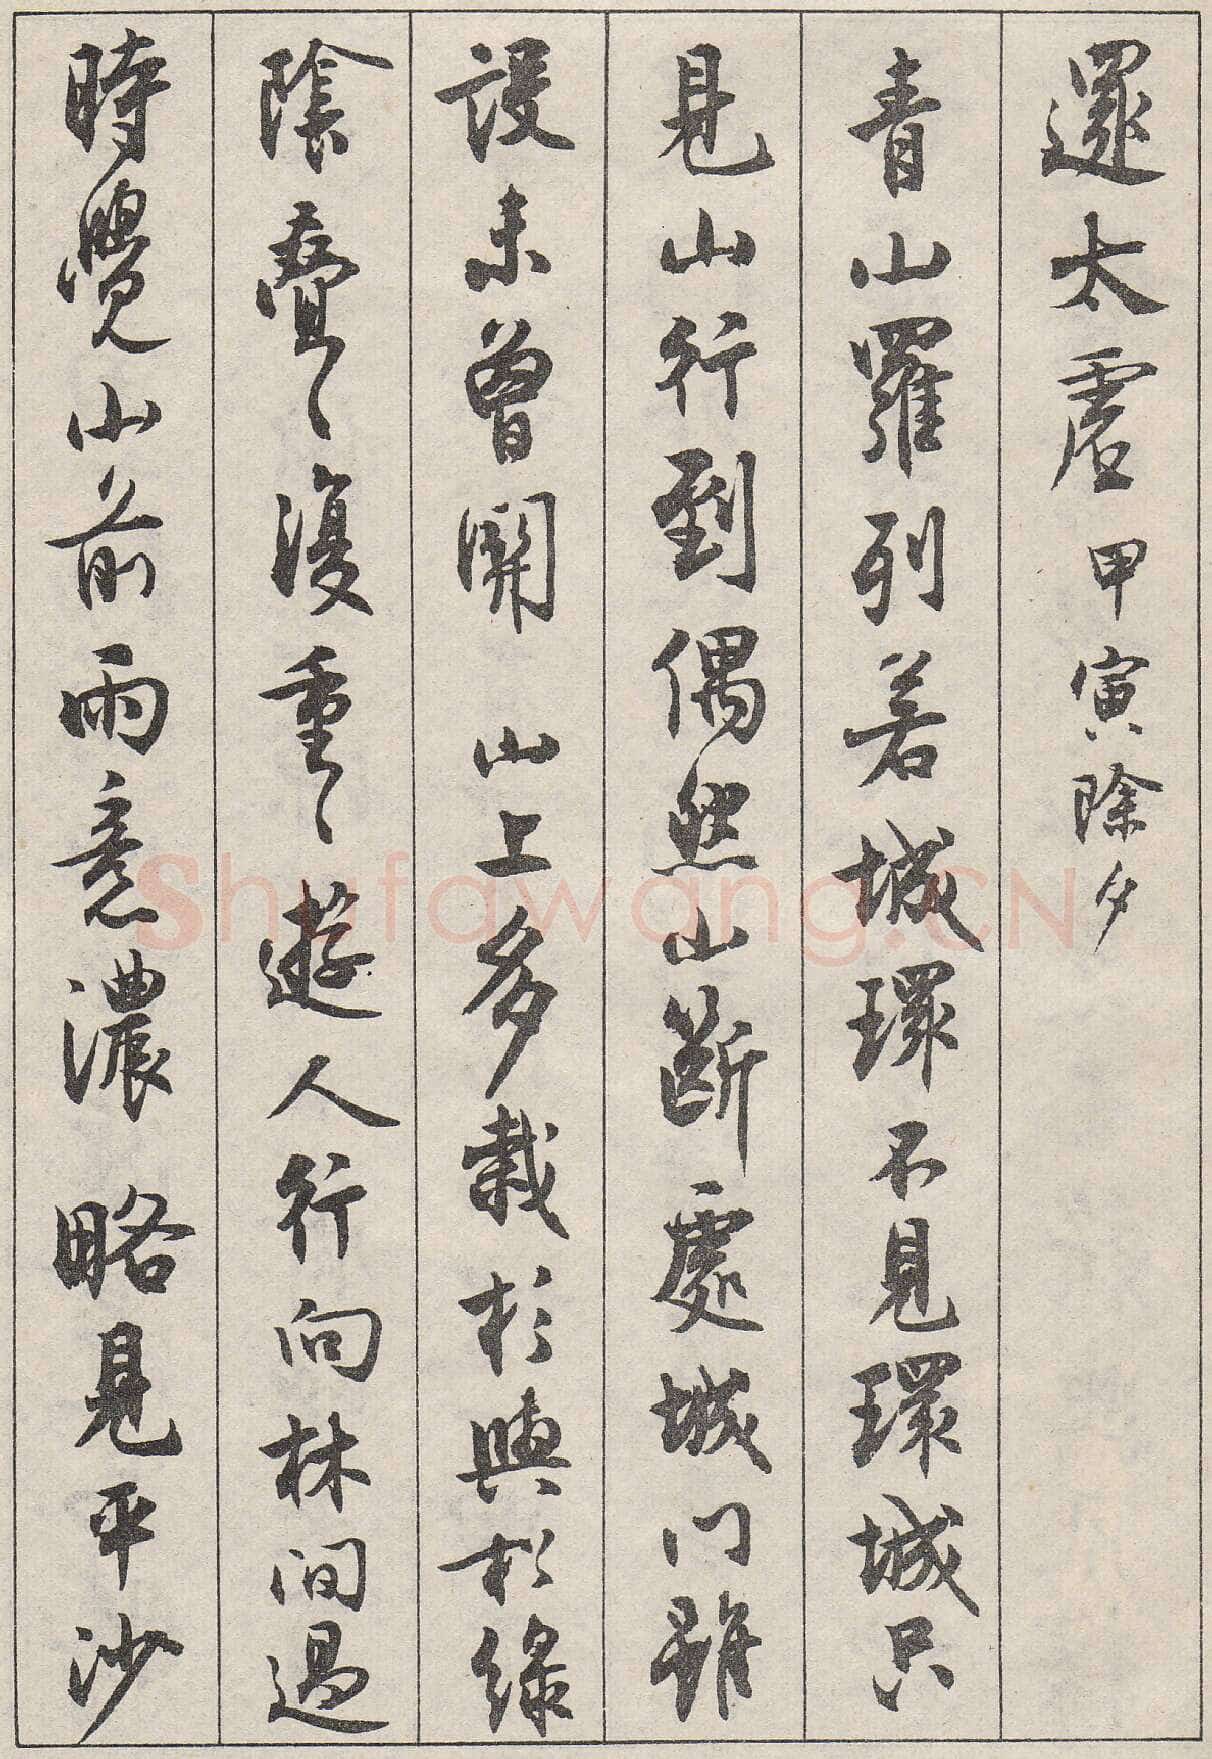 還太虛甲寅除夕
青山羅列若城環不見環城只
見山行到偶然山斷處城門雖
設未曾關 山上多栽杉與松綠
陰疊〻復重〻遊人行向林間過
時覺山前雨意濃 略見平沙
Shufawang.CN